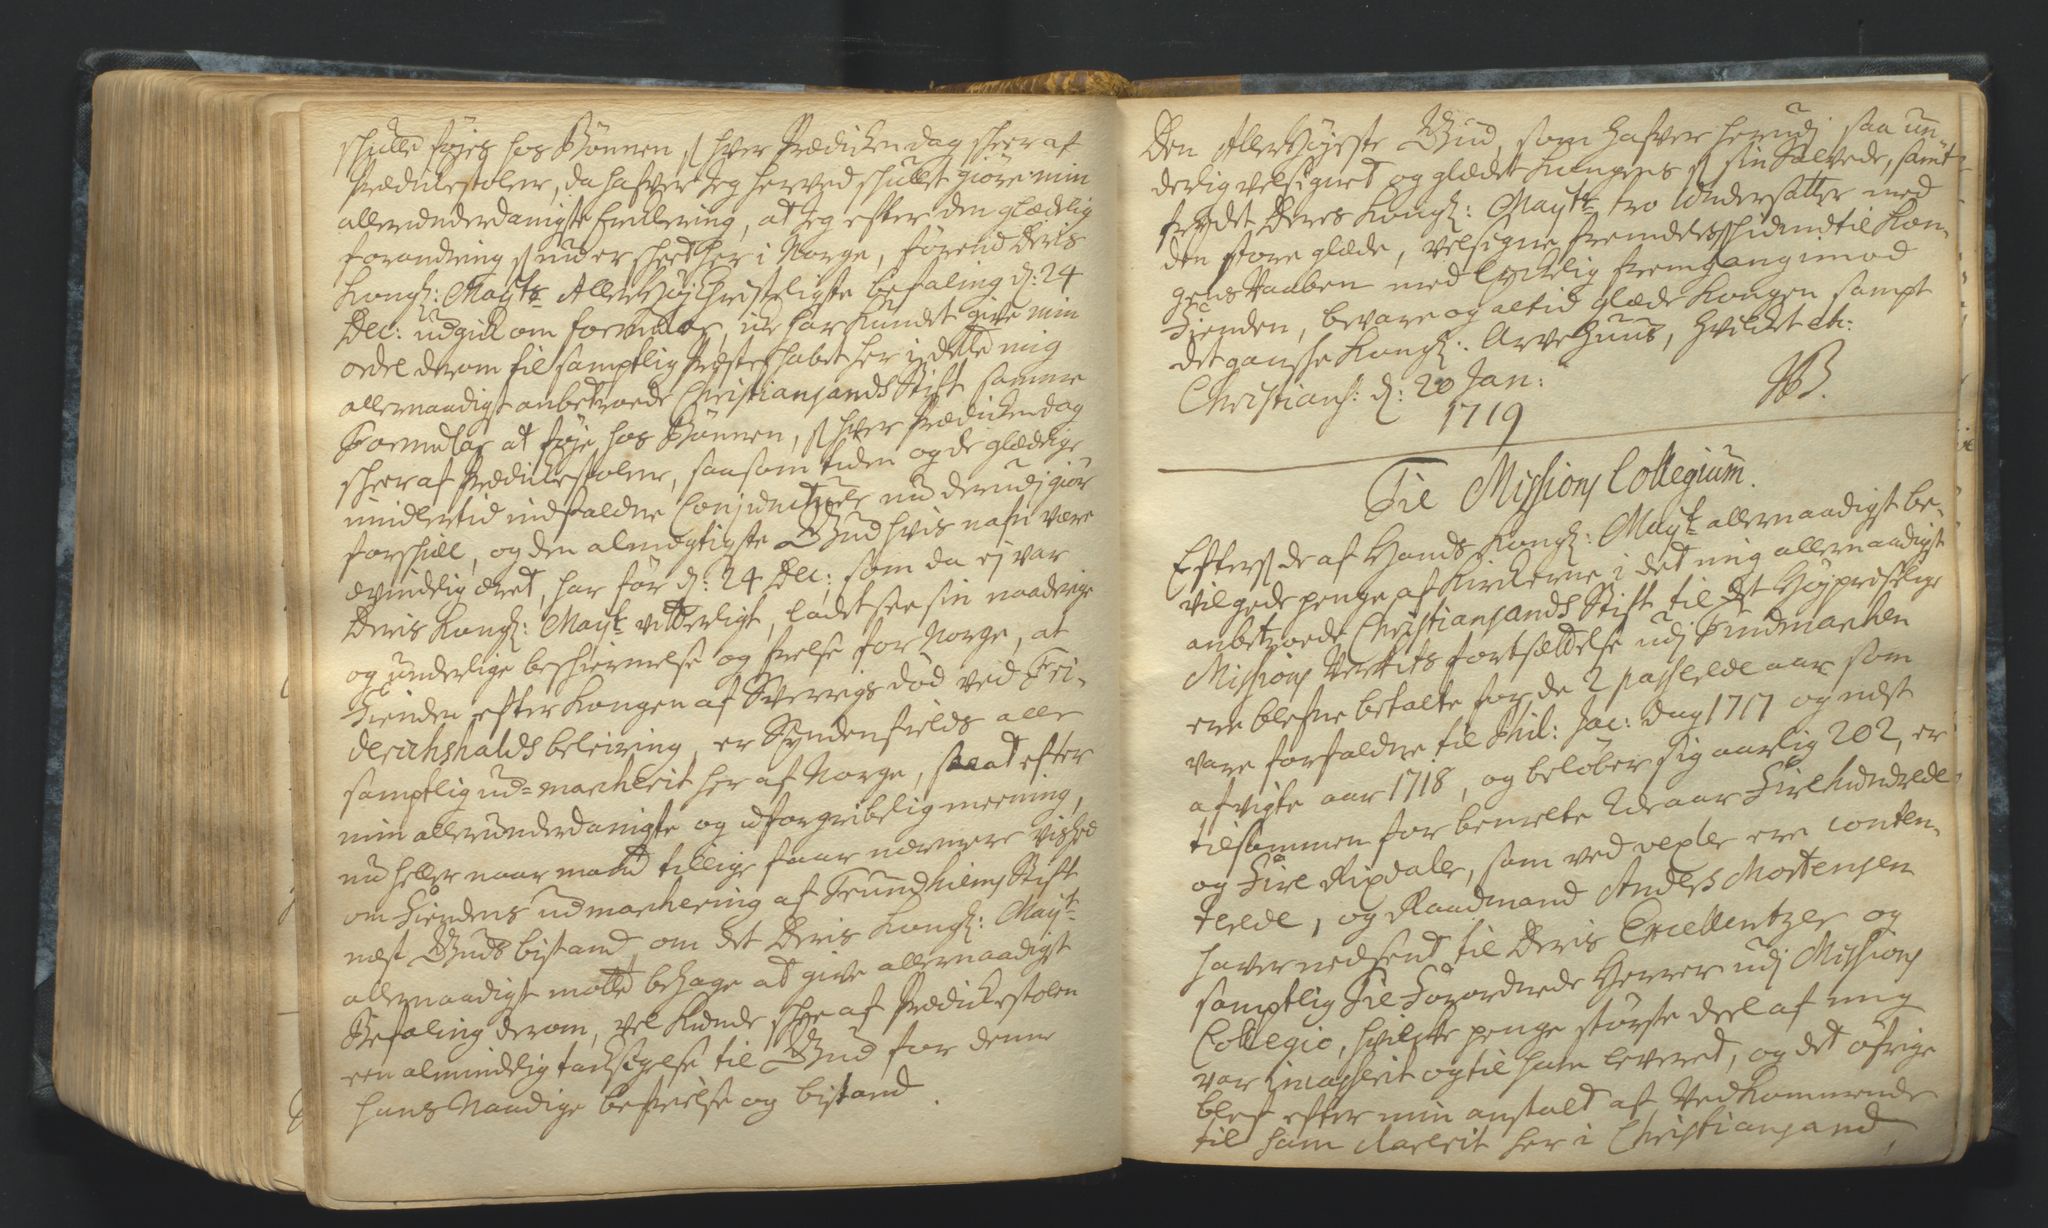 skulle føjes hos Bønnen, som hver Prædicken dag skeer af
Prædickestolen, da hafver Jeg herved skullet giøre min
allerunderdanigste Erklering, at Jeg efter den glædelig
forandring som nu er skeet her i Norge, førend Deris
Kongl: Mayts Aller Høj Christeligste befaling d: 24
Dec: udgik om formular, icke har kundet give min
ordre derom til samptlig Præsteskabet her i dette mig
allernaadigst anbetroede Christiansands Stift samme
Formular at føje hos Bønnen, som hver Prædicken dag
skeer af Prædickestolen, saasom tiden og de glædelige
imidlertid indfaldne Conjuncturer nu derudj giør
forskiæl, og den almægtigste Gud hvis nafn være
ævindelig æret, har før d: 24 Dec: som da ej var
Deris Kongl: Mayt vitterligt, ladet see sin naaderige
og underlige beskiermelse og frelse for Norge, at
Fienden efter Kongen af Sverrigs død ved Fri-
derichshalds beleiring, er Syndenfields alle
samptlig ud-marcherit her af Norge, saa at efter
min allerunderdanigste og uforgribelig meening,
nu heller naar mand tillige faar nærmere vished
om Fiendens udmarchering af Trundhiems Stift
næst Guds bistand om det Deris Kongl: Mayt
allernaadigst motte behage at give allernaadigst
Befaling derom, vel kunde skee af Prædickestolen
een almindelig taksigelse til Gud for denne
hans Naadige befrielse og bistand.
Den Aller Højeste Gud, som hafver herudj saa un-
derlig velsignet og glædet Kongens som sin Salvede, samt
frydet Deres Kongl: Mayts tro Undersaatter med
den store glæde, velsigne fremdeelis til Kon-
gens Vaaben med lyckelig fremgang imod
Fienden, bevare og altid glæde Kongen sampt
det ganske Kongl: Arve Huus, hvilket etc:
Christians: d: 20 Jan:
1719
Til Missions Collegium.
Eftersom de af Hands Kongl: Mayt allernaadigst be-
vilgede penge af Kirkerne i det mig allernaadigst
anbetroede Christiansands Stift til det Højpriselige
Missions Verkets fortsættelse udj Findmarken
ere blefne betalte for de 2 passerede aar som
vare forfaldne til Phil: Jac: dag 1717 og næst
afvigte aar 1718, og beløber sig aarlig 202, er
tilsammen for bemelte 2de aar Fire hundrede
og Fire Rixdaler, som ved vexler ere conten-
terede, og Raadmand Anders Mortensen
haver nedsent til Deris Excellentzer og
samptlig Til Forordnede Herrer udj Missions
Collegio, hvilke penge største deel af mig
var incasserit og til ham leveret, og det øfrige
blef efter min anstalt af Vedkommende
til ham leverit her i Christiansand,